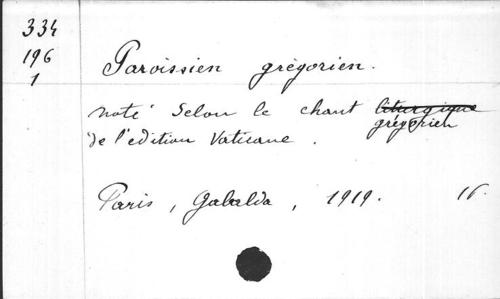 334
196
1
Paroissien grégorien.
noté selon le chant liturgique
grégorien
de l'edition Vaticane.
Paris, Gabalda, 1919. 16.